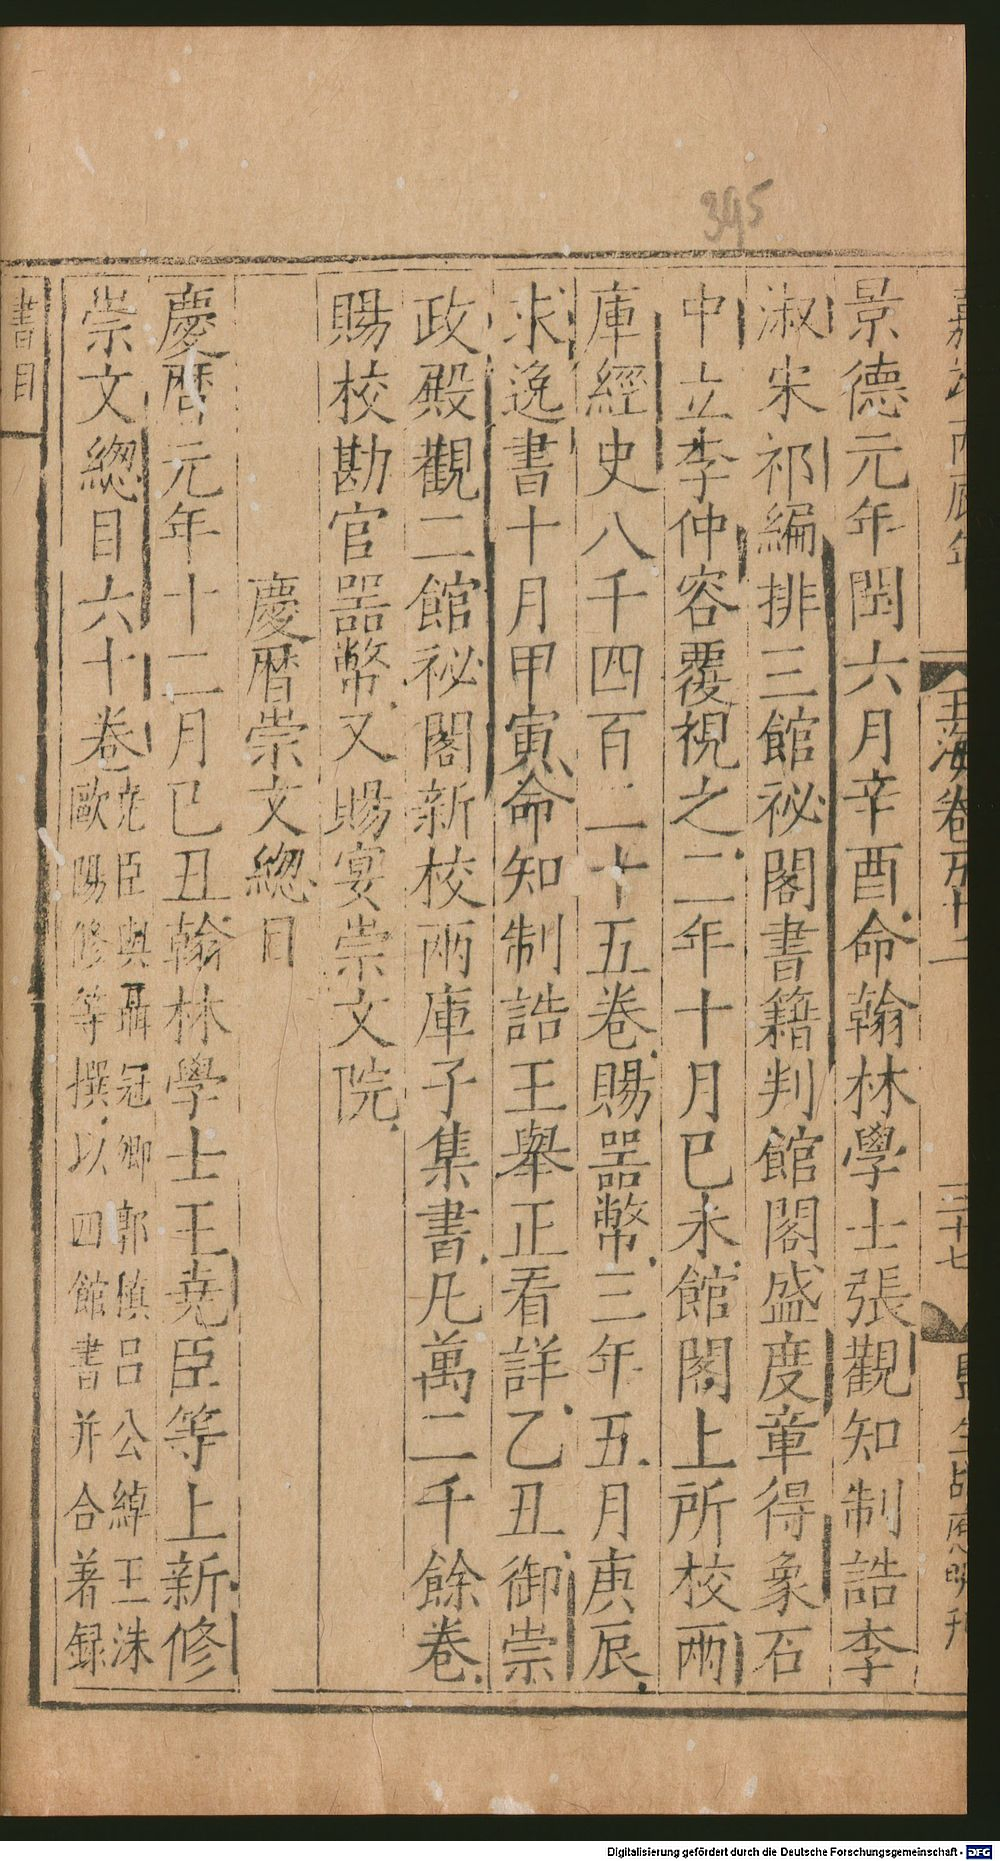 395
嘉靖丙辰年
玉海卷五十二
三十七
監生胡應明刊
景德元年閏六月辛酉命翰林學士張觀知制誥李
淑宋祁編排三館祕閣書籍判館閣盛度章得象石
中立李仲容覆視之二年十月巳未館閣上所校兩
庫經史八千四百二十五卷賜器幣三年五月庚辰
求逸書十月甲寅命知制誥王舉正看詳乙丑御崇
政殿觀二館祕閣新校兩庫子集書凡萬二千餘卷
賜校勘官器幣又賜宴崇文院
慶曆崇文總目
慶曆元年十二月巳丑翰林學士王堯臣等上新修
崇文總目六十卷堯臣與聶冠卿郭稹呂公綽王洙
歐陽修等撰以四館書并合著録
書目
Digitalisierung gefördert durch die Deutsche Forschungsgemeinschaft - DFG